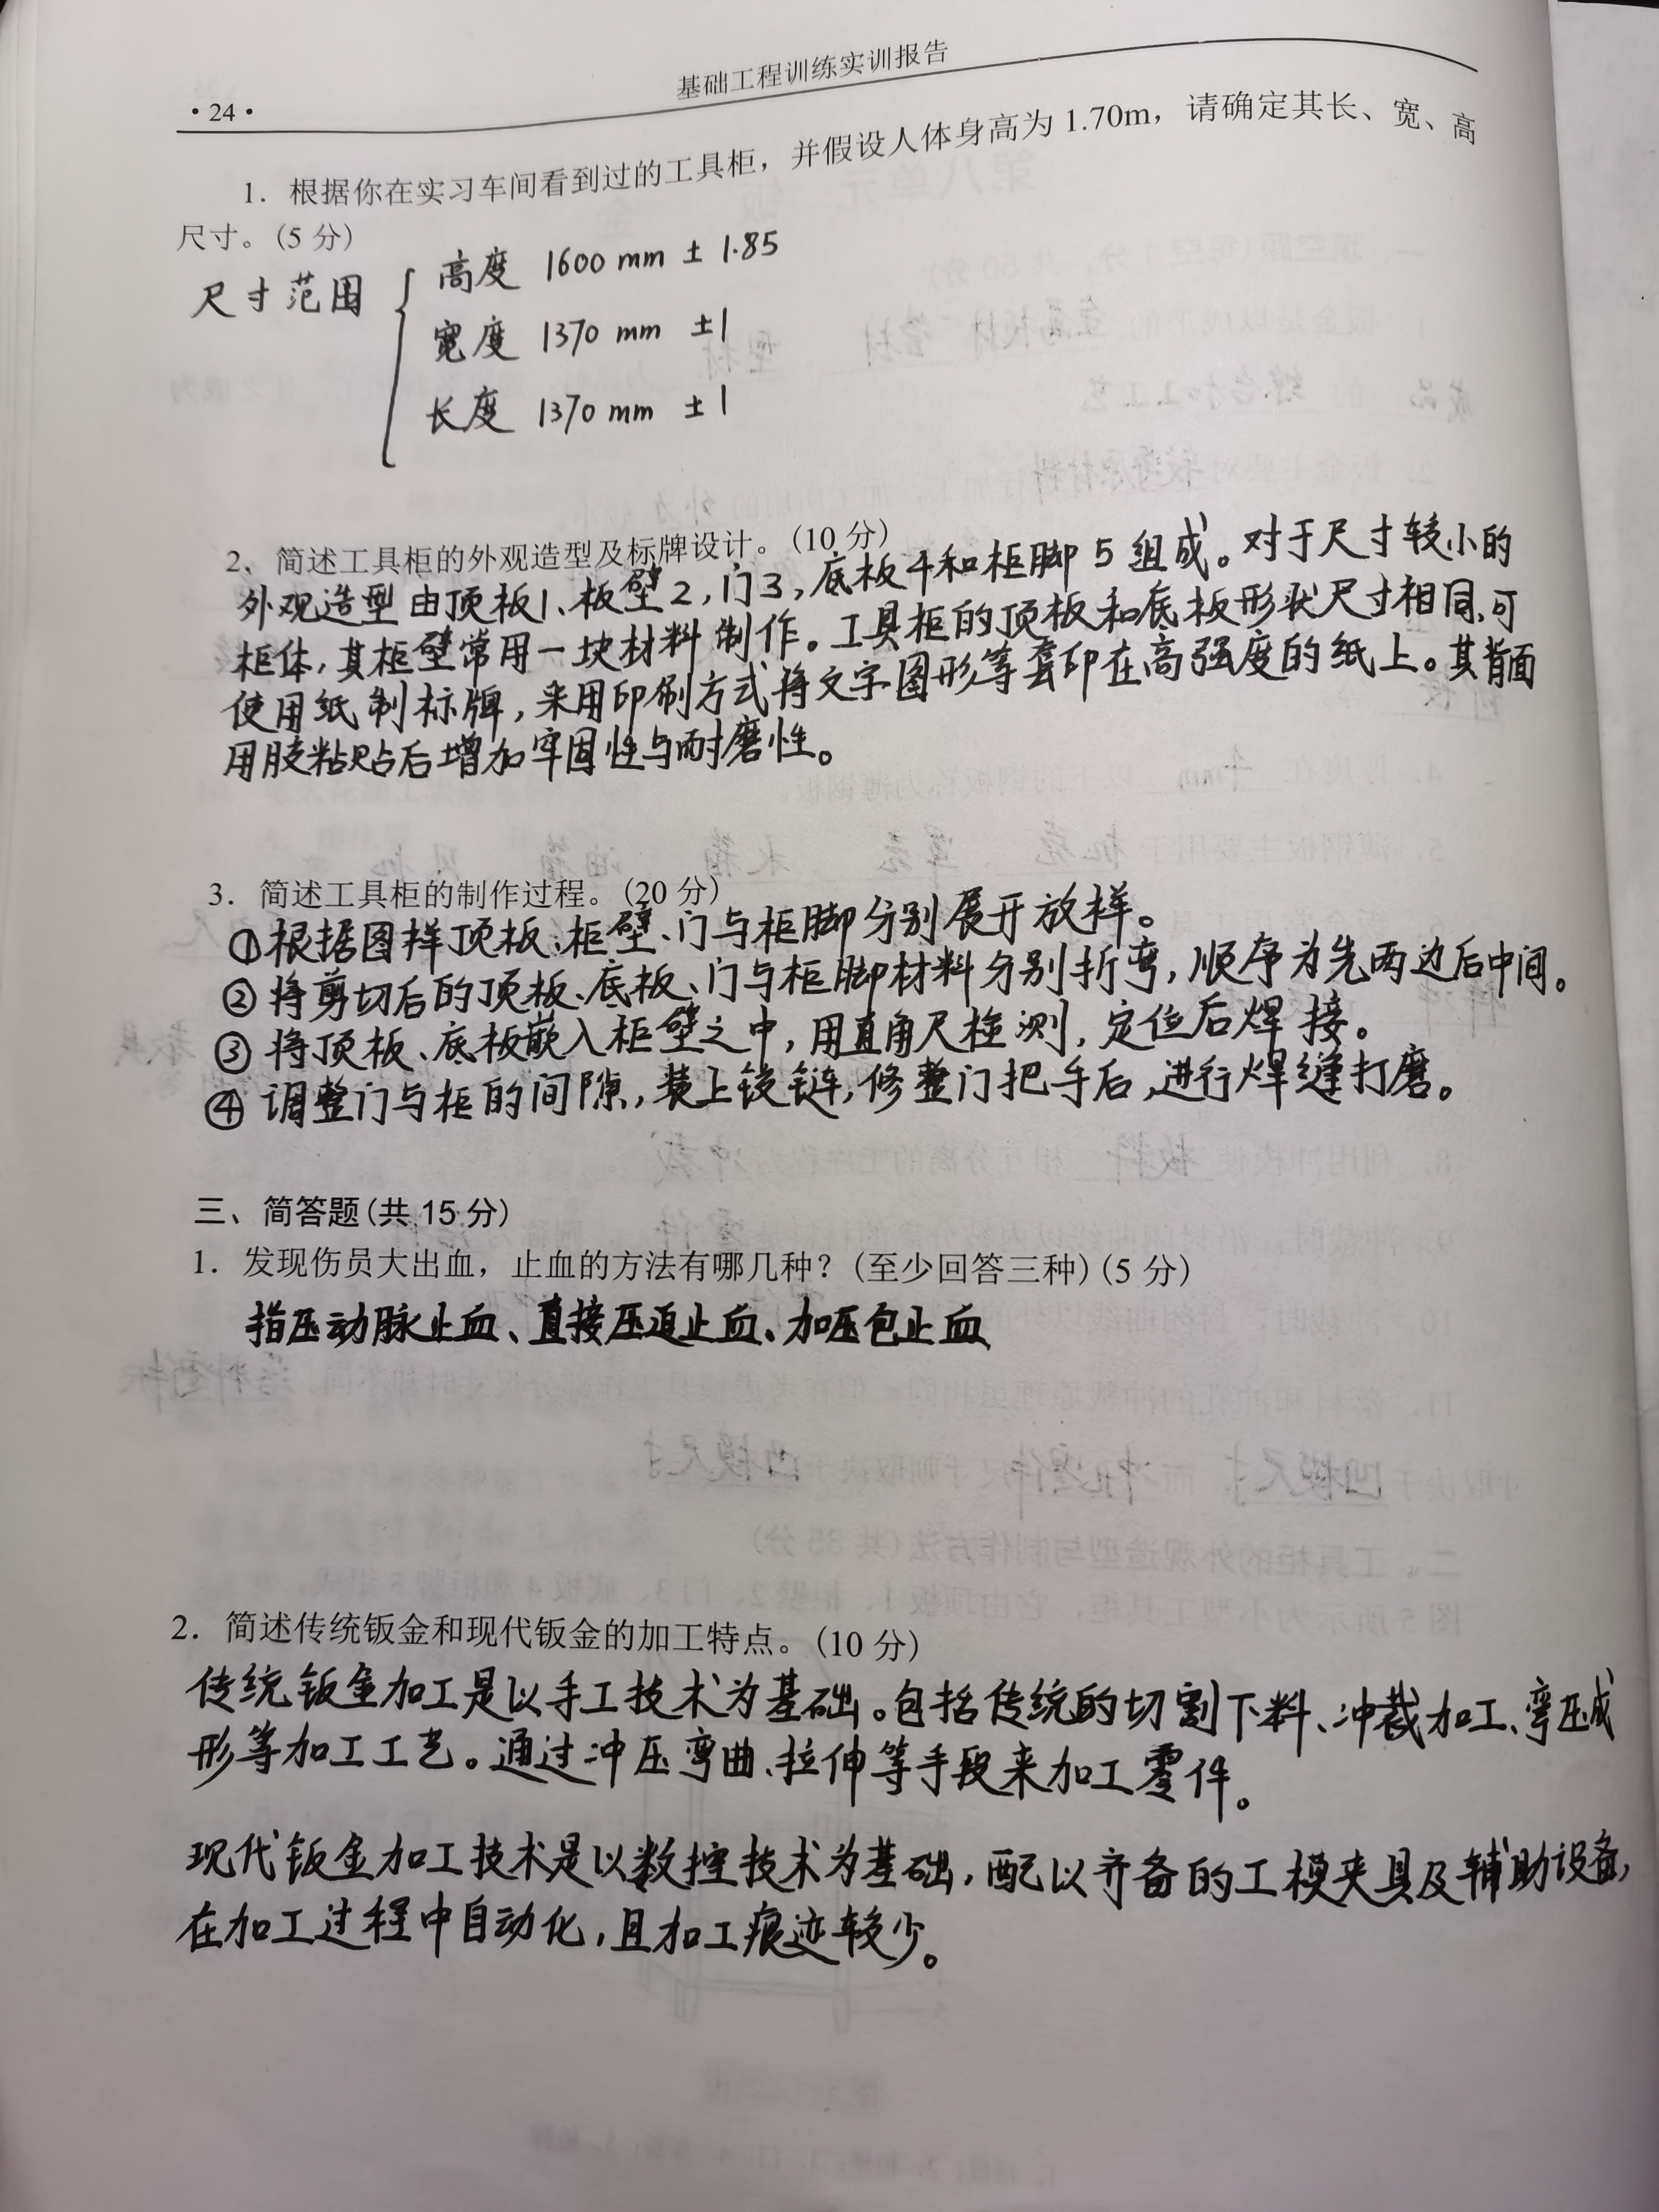 基础工程训练实训报告
·24·
1．根据你在实习车间看到过的工具柜，并假设人体身高为 1.70m，请确定其长、宽、高
尺寸。(5 分)
尺寸范围
高度 1600 mm ± 1.85
宽度 1370 mm ±1
长度 1370 mm ±1
2、简述工具柜的外观造型及标牌设计。(10 分)
外观造型由顶板1、板壁2,门3,底板4和柜脚5组成。对于尺寸较小的
柜体,其柜壁常用一块材料制作。工具柜的顶板和底板形状尺寸相同,可
使用纸制标牌,采用印刷方式将文字图形等套印在高强度的纸上。其背面
用胶粘贴后增加牢固性与耐磨性。
3．简述工具柜的制作过程。(20 分)
①根据图样顶板、柜壁、门与柜脚分别展开放样。
②将剪切后的顶板、底板、门与柜脚材料分别折弯,顺序为先两边后中间。
③将顶板、底板嵌入柜壁之中,用直角尺检测,定位后焊接。
④调整门与柜的间隙,装上铰链,修整门把手后,进行焊缝打磨。
三、简答题(共 15 分)
1．发现伤员大出血，止血的方法有哪几种？(至少回答三种)(5 分)
指压动脉止血、直接压迫止血、加压包止血
2．简述传统钣金和现代钣金的加工特点。(10 分)
传统钣金加工是以手工技术为基础。包括传统的切割下料、冲裁加工、弯压成
形等加工工艺。通过冲压弯曲、拉伸等手段来加工零件。
现代钣金加工技术是以数控技术为基础,配以齐备的工模夹具及辅助设备,
在加工过程中自动化,且加工痕迹较少。